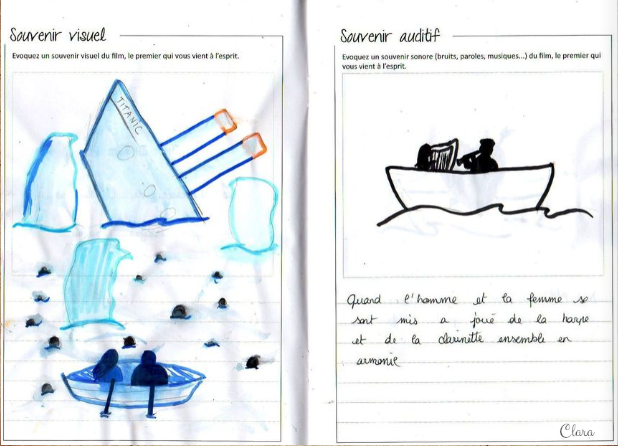 Souvenir visuel
Evoquez un souvenir visuel du film, le premier qui vous vient à l'esprit.
TITANIC
Souvenir auditif
Evoquez un souvenir sonore (bruits, paroles, musiques...) du film, le premier qui
vous vient à l'esprit.
Quand l'homme et la femme se
sont mis a joué de la harpe
et de la clarinette ensemble en
armonie
Clara